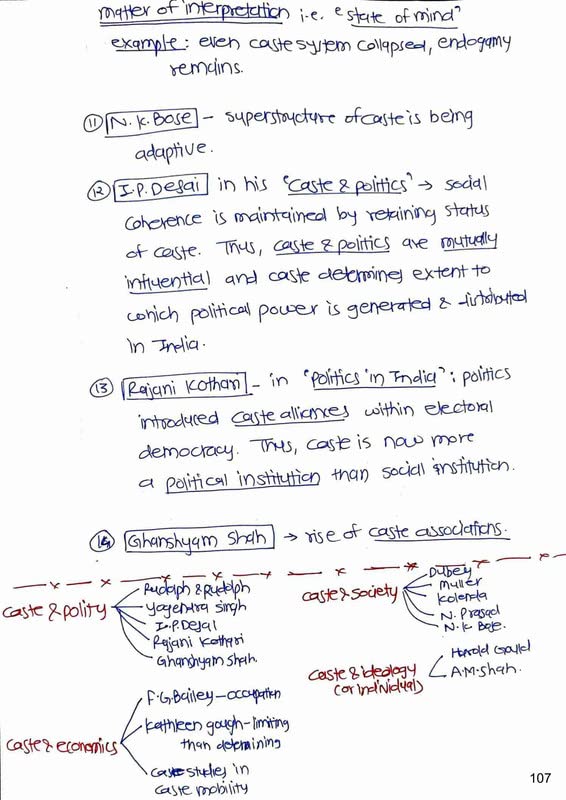 matter of interpretation i.e. "state of mind"
example: even caste system collapsed, endogamy
remains.
⑪ N.K.Bose - superstructure of caste is being
adaptive.
⑫ I.P.Desai in his "Caste & politics" → social
coherence is maintained by retaining status
of caste. Thus, caste & politics are mutually
influential and caste determines extent to
which political power is generated & distributed
in India.
⑬ Rajani Kothari - in "Politics in India": politics
introduced caste alliances within electoral
democracy. Thus, caste is now more
a political institution than social institution.
⑭ Ghanshyam Shah → rise of caste associations.
Caste & polity
Rudolph & Rudolph
Yogendra singh
I.P.Desai
Rajani Kothari
Ghanshyam Shah.
Caste & society
Dubey
Muller
Kolenda
N. Prasad
N.K Bose.
Caste & ideology
(or individual)
Harold Gould
A.M.Shah.
Caste & economics
F.G.Bailey - occupation
Kathleen gough - limiting
than determining
Case studies in
caste mobility
107